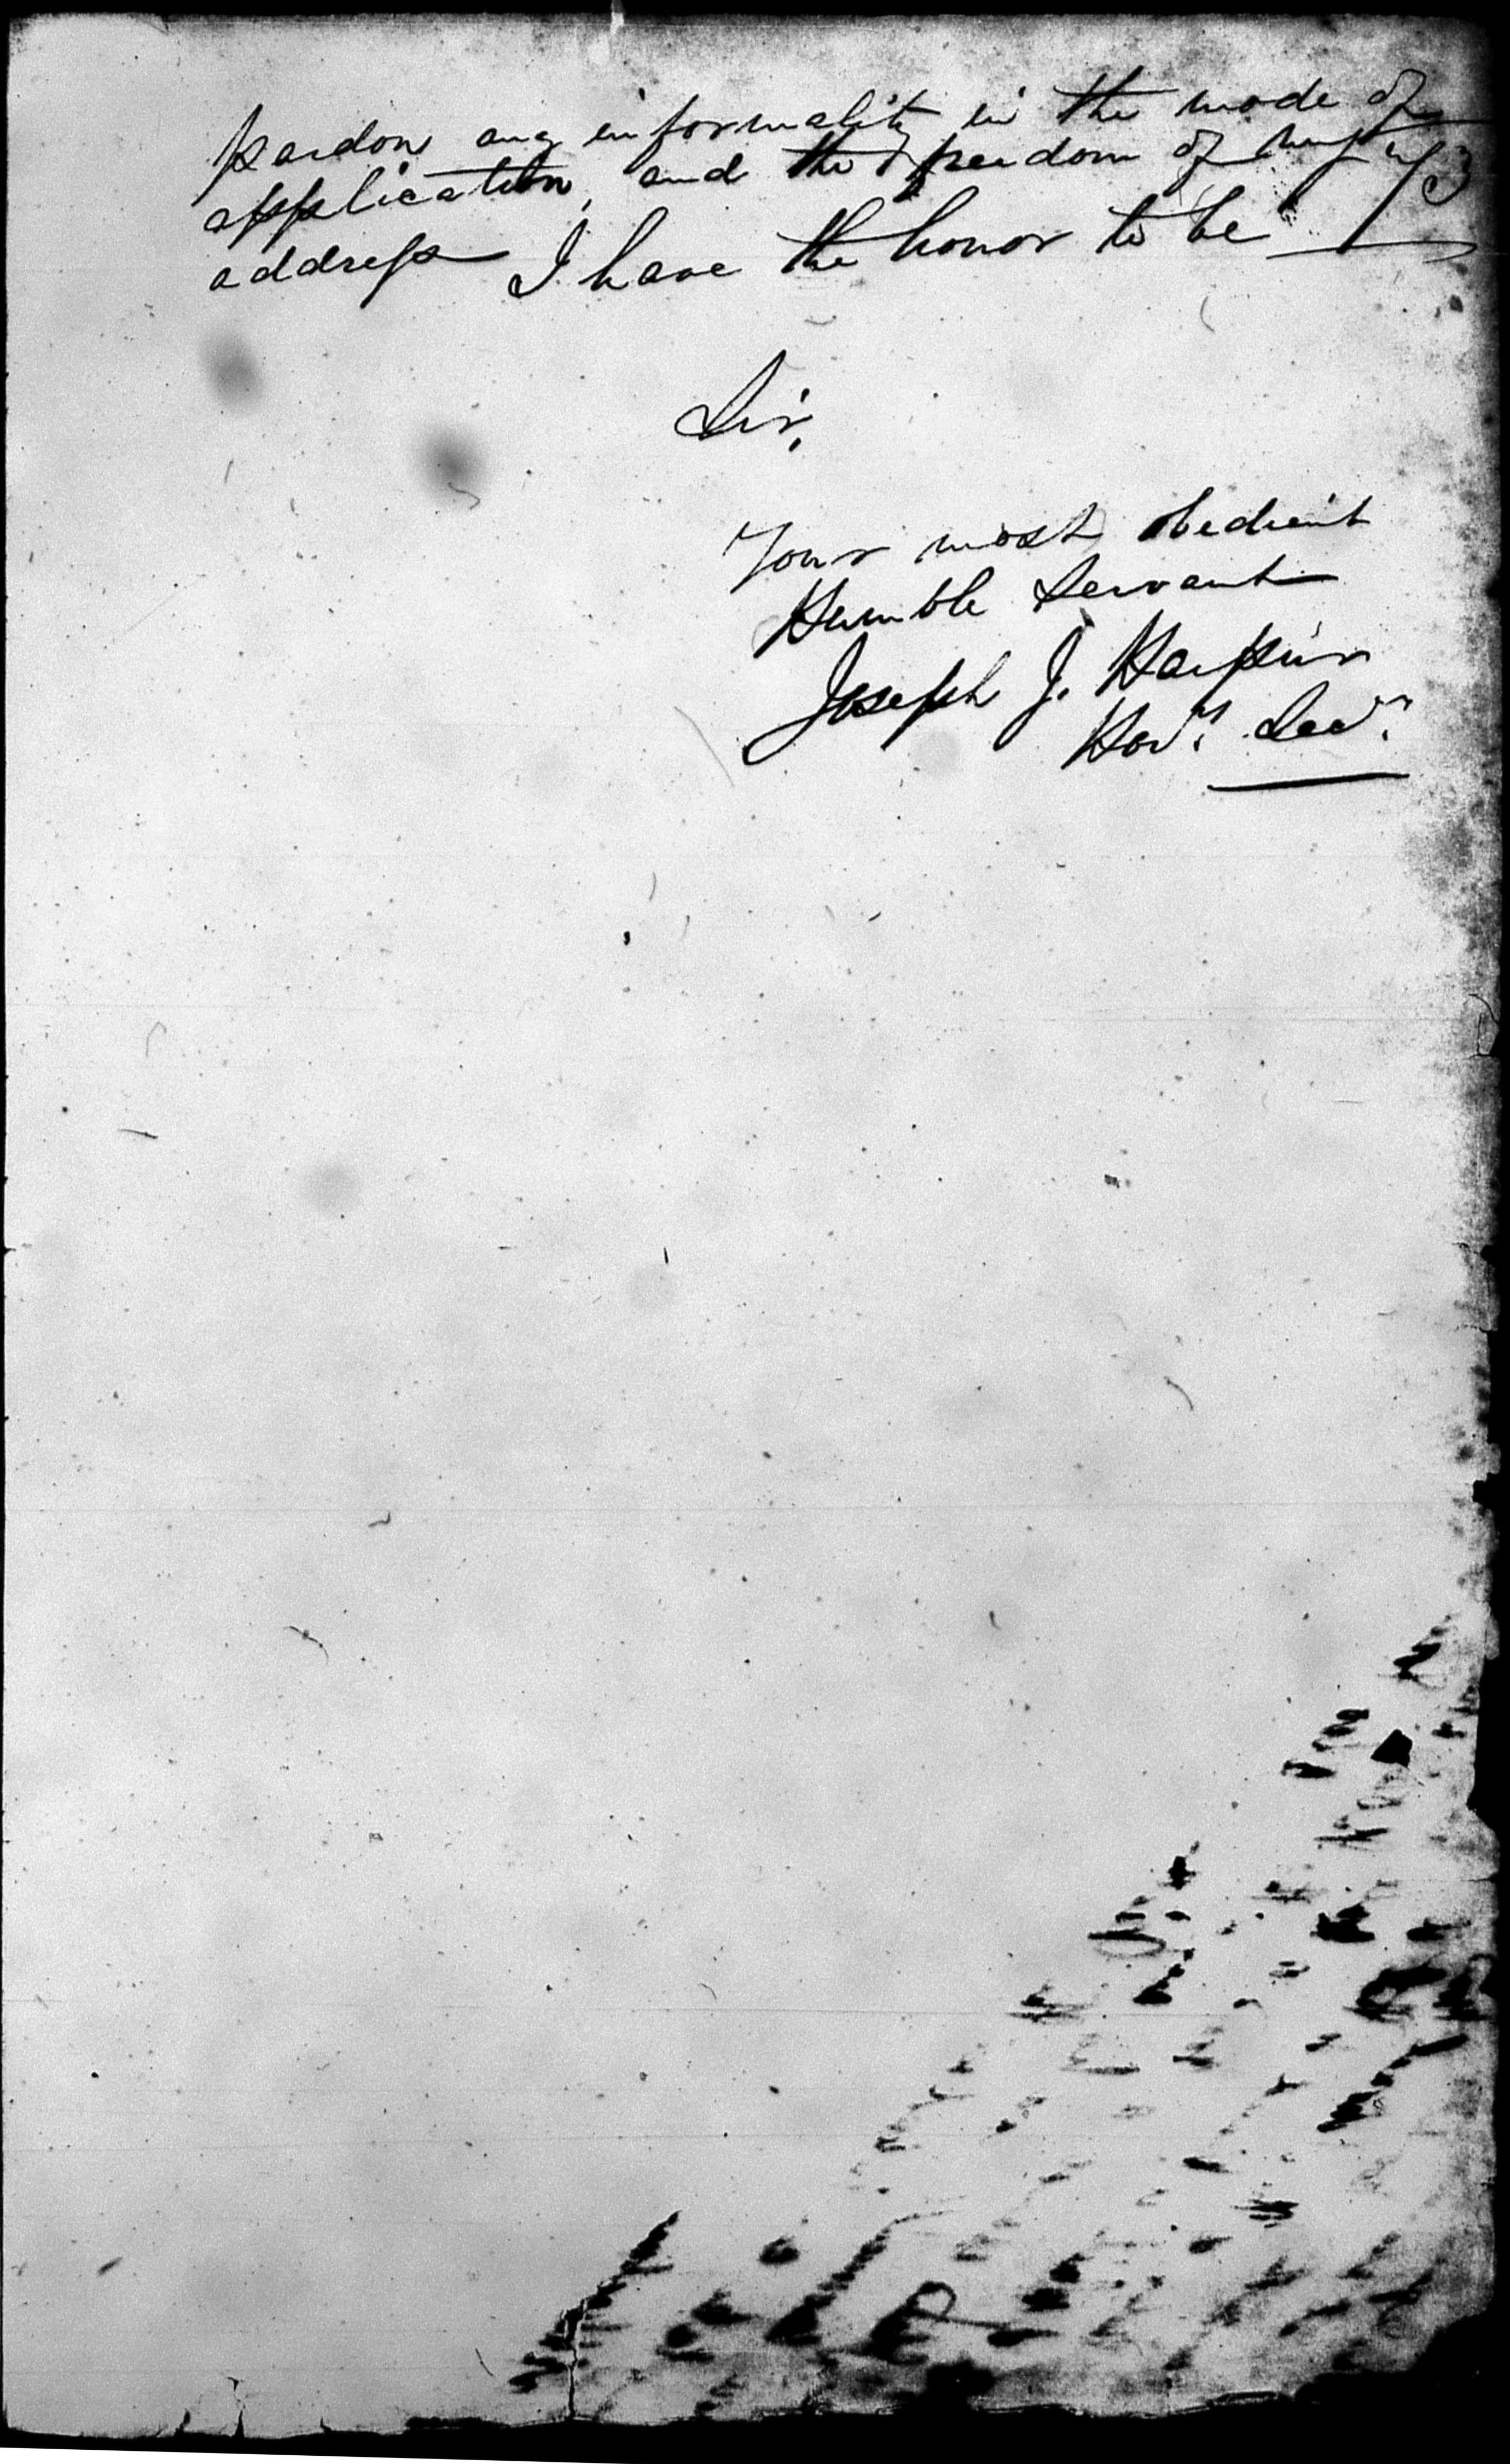 pardon any informality in the mode of
application, and the freedom of my
address I have the honor to be
Sir,
Your most obedient
Humble Servant
Joseph J. Harpur
Hory. Secy.